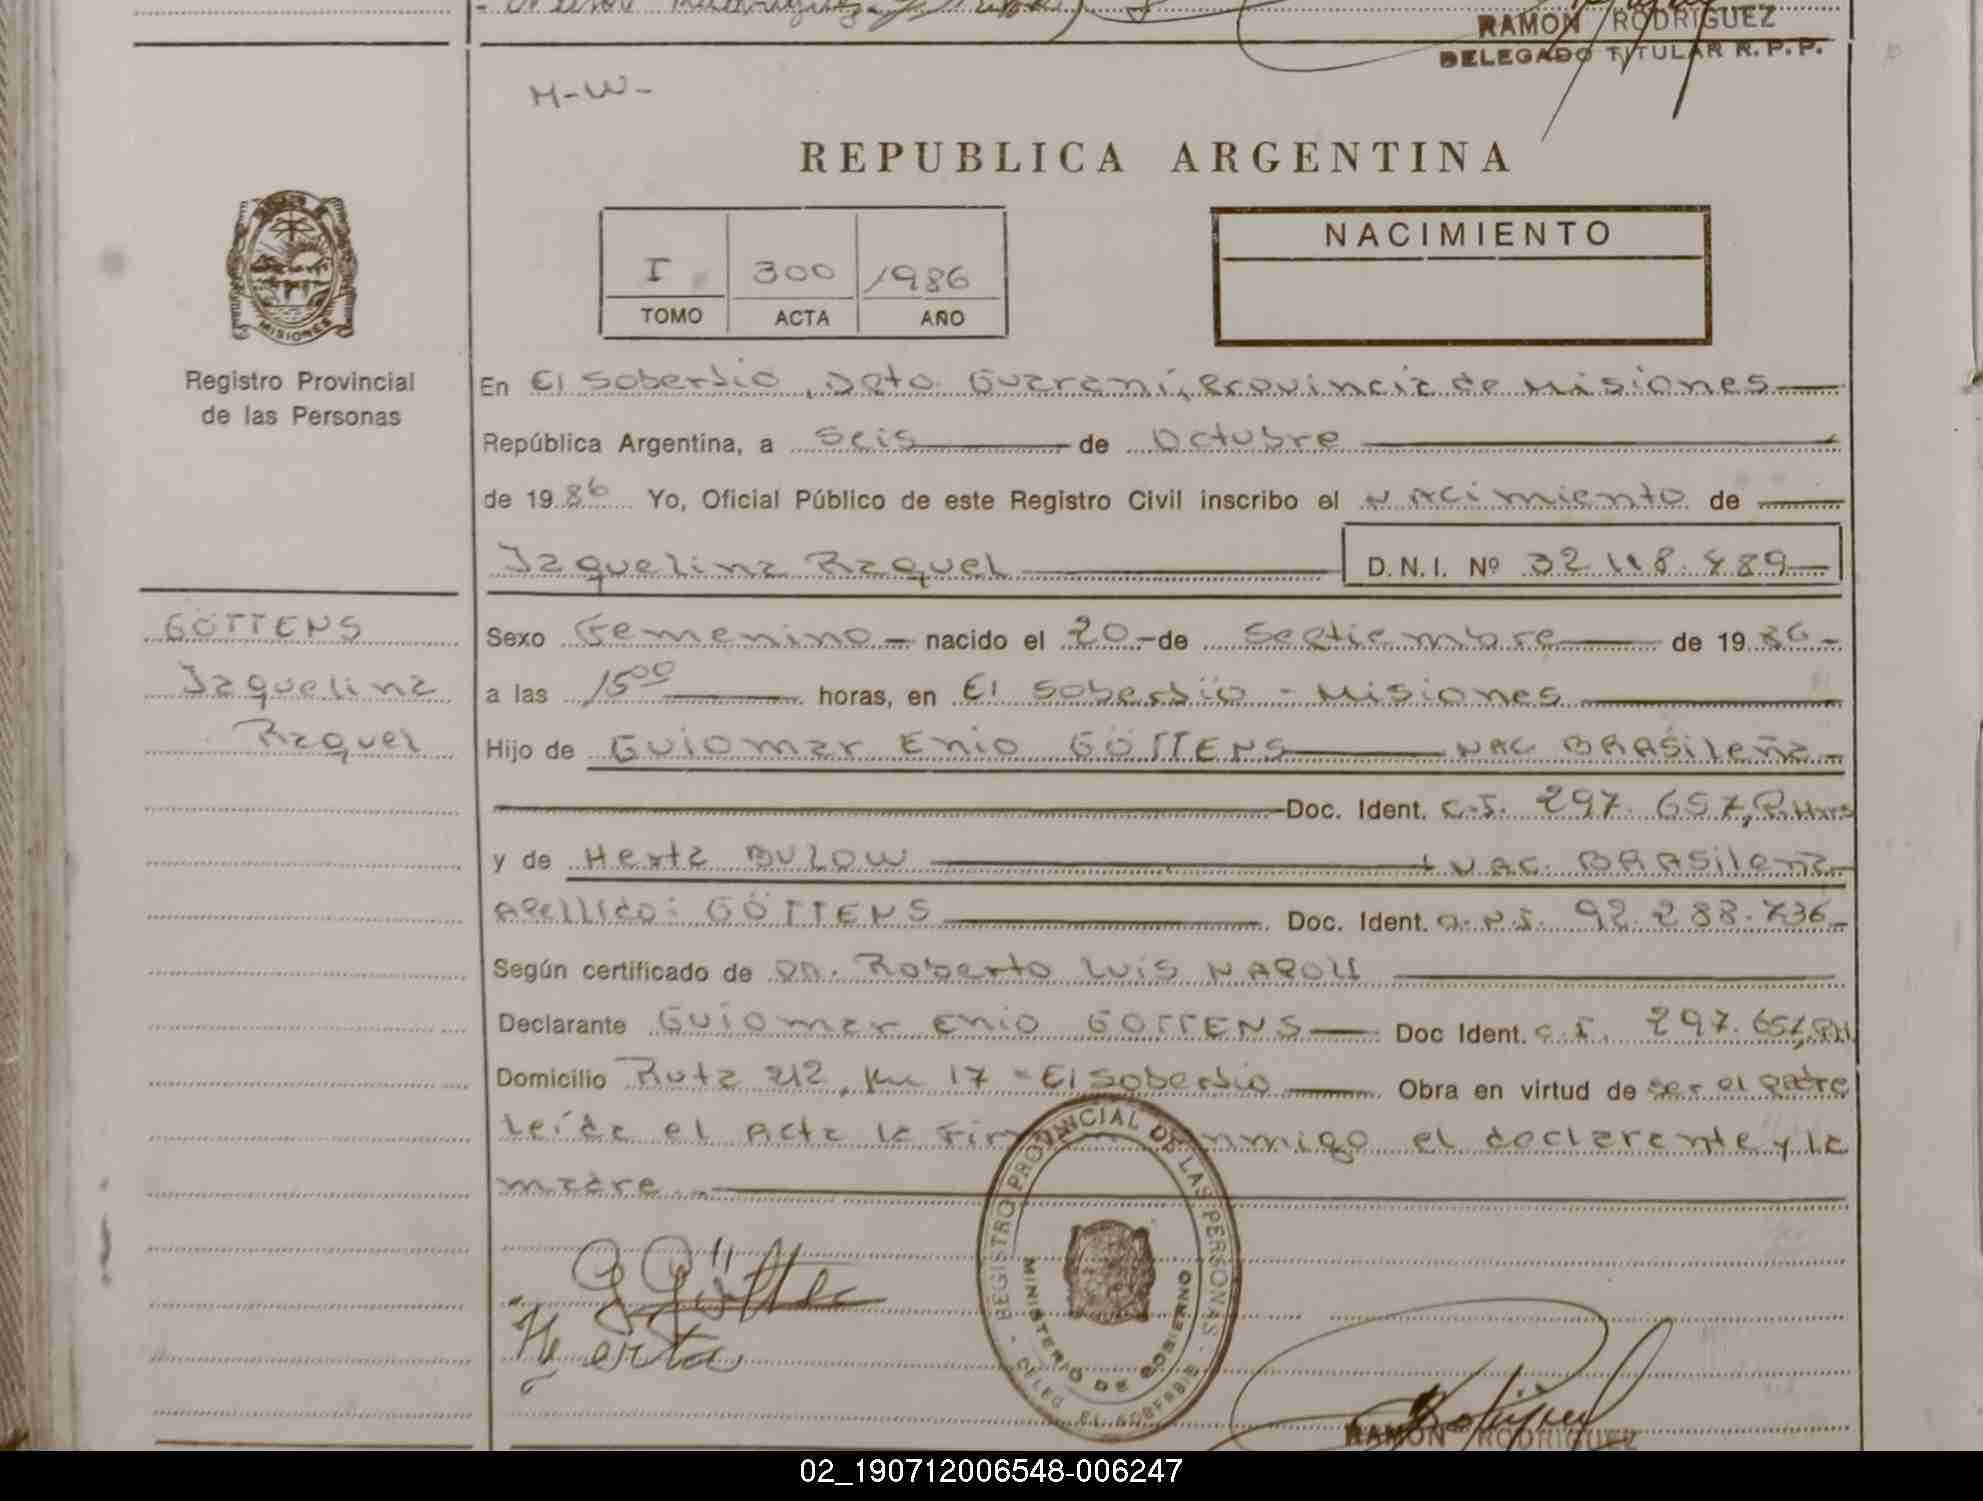 RAMON RODRIGUEZ
DELEGADO TITULAR R.P.P.
M-W-
REPUBLICA ARGENTINA
NACIMIENTO
I 300 1986
TOMO ACTA AÑO
MISIONES
Registro Provincial
de las Personas
En El Soberbio, Dpto. Guaraní, Provincia de Misiones
República Argentina, a Seis de Octubre
de 1986 Yo, Oficial Público de este Registro Civil inscribo el Nacimiento de
Jaquelina Raquel D.N.I. Nº 32.118.489
GÖTTENS
Jaquelina
Raquel
Sexo Femenino - nacido el 20 - de Septiembre de 1986 -
a las 15⁰⁰ horas, en El Soberbio - Misiones
Hijo de Guiomar Enio GÖTTENS NAC. BRASileña
Doc. Ident. C.I. 297.657,
y de Herta BULOW NAC. BRASileña
Apellido: GÖTTENS Doc. Ident. D.N.I. 92.288.736
Según certificado de DR. Roberto Luis NAPOLI
Declarante Guiomar Enio GOTTENS Doc Ident. C.I. 297.657,
Domicilio Ruta 212, Km 17 - El Soberbio Obra en virtud de ser el padre
Leída el Acta la conmigo el declarante y la
madre.
REGISTRO PROVINCIAL DE LAS PERSONAS
MINISTERIO DE GOBIERNO
DELEG. EL SOBERBIO
Herta
RAMON RODRIGUEZ
02_190712006548-006247